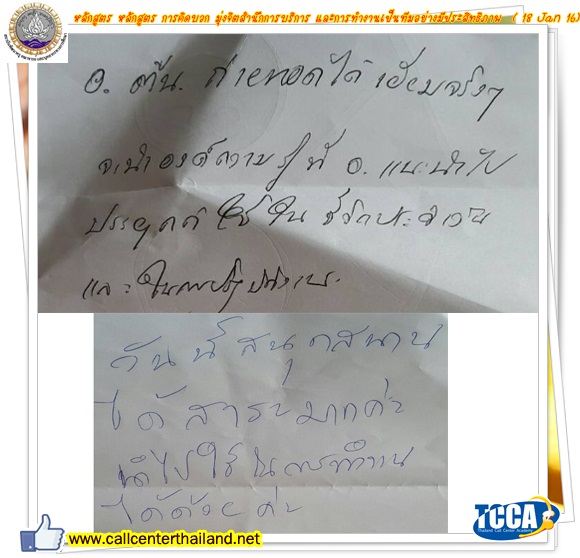 หลักสูตร หลักสูตร การคิดบวก มุ่งจิตสำนึกการบริการ และการทำงานเป็นทีมอย่างมีประสิทธิภาพ ( 18 Jan 16)
อ. ตุ้น. ถ่ายทอดได้ เยี่ยมจริงๆ
จะนำองค์ความรู้ ที่ อ. แนะนำไป
ประยุกต์ ใช้ ใน ชีวิตประจำวัน
และ
วันนี้ สนุกสนาน
ได้ สาระมากค่ะ
นำไปใช้ในการทำงาน
ได้ด้วยค่ะ
www.callcenterthailand.net
TCCA
Thailand Call Center Academy